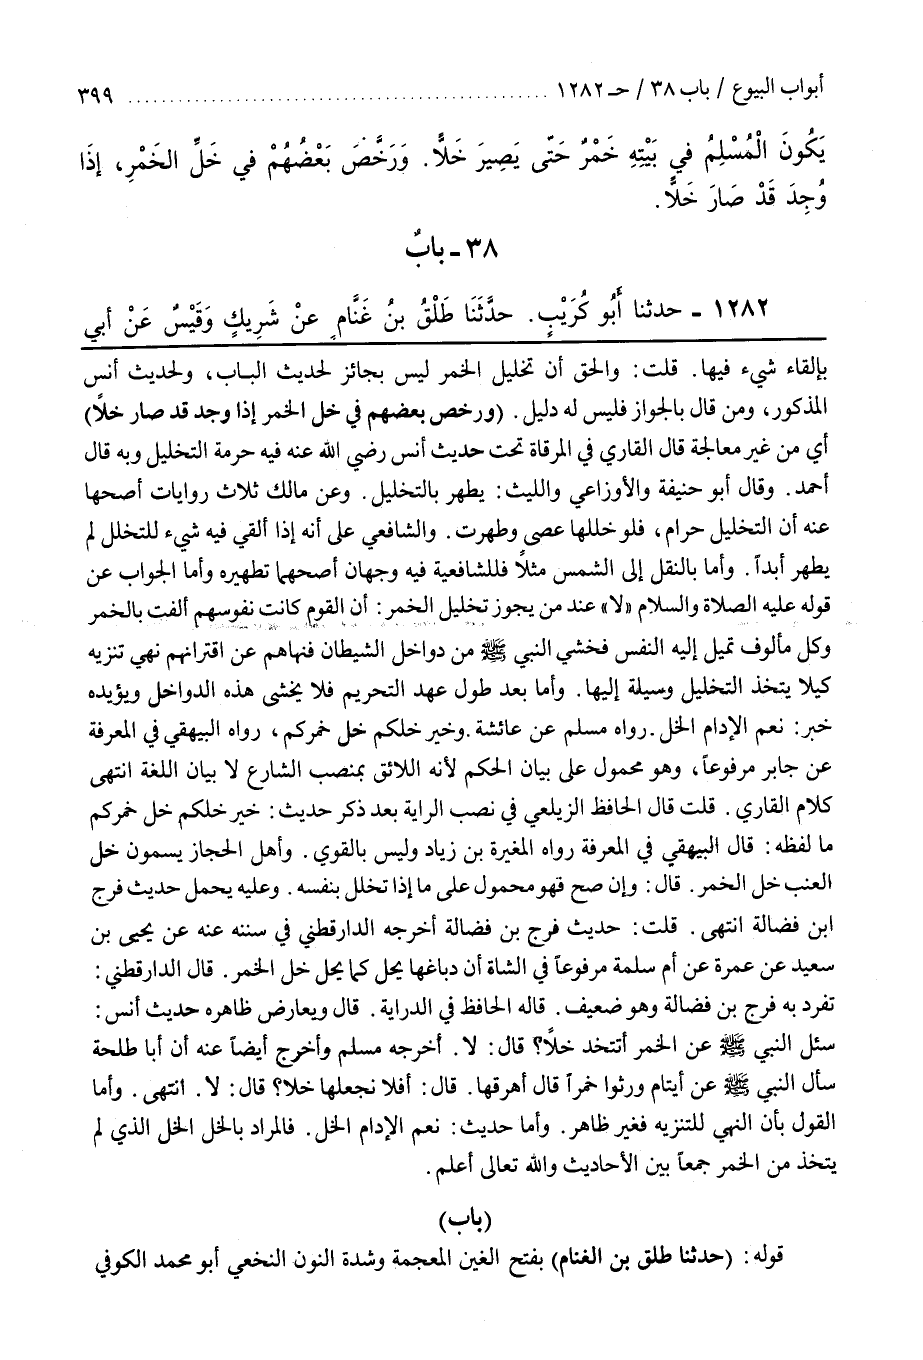 أبواب البيوع / باب ٣٨ / حـ ١٢٨٢ .................................................. ٣٩٩
يَكُونَ الْمُسْلِمُ في بَيْتِهِ خَمْرٌ حَتّى يَصِيرَ خَلًّا. وَرَخَّصَ بَعْضُهُمْ في خَلِّ الخَمْرِ، إذَا
وُجِدَ قَدْ صَارَ خَلًّا.
٣٨ ـ بابٌ
١٢٨٢ ـ حدثنا أَبُو كُرَيْبٍ. حدَّثَنَا طَلْقُ بنُ غَنَّامٍ عنْ شَرِيكٍ وَقَيْسٌ عَنْ أبي
بإلقاء شيء فيها. قلت: والحق أن تخليل الخمر ليس بجائز لحديث الباب، ولحديث أنس
المذكور، ومن قال بالجواز فليس له دليل. (ورخص بعضهم في خل الخمر إذا وجد قد صار خلاً)
أي من غير معالجة قال القاري في المرقاة تحت حديث أنس رضي الله عنه فيه حرمة التخليل وبه قال
أحمد. وقال أبو حنيفة والأوزاعي والليث: يطهر بالتخليل. وعن مالك ثلاث روايات أصحها
عنه أن التخليل حرام، فلو خللها عصى وطهرت. والشافعي على أنه إذا ألقي فيه شيء للتخلل لم
يطهر أبداً. وأما بالنقل إلى الشمس مثلاً فللشافعية فيه وجهان أصحهما تطهيره وأما الجواب عن
قوله عليه الصلاة والسلام «لا» عند من يجوز تخليل الخمر: أن القوم كانت نفوسهم ألفت بالخمر
وكل مألوف تميل إليه النفس فخشي النبي ﷺ من دواخل الشيطان فنهاهم عن اقترانهم نهي تنزيه
كيلا يتخذ التخليل وسيلة إليها. وأما بعد طول عهد التحريم فلا يخشى هذه الدواخل ويؤيده
خبر: نعم الإدام الخل. رواه مسلم عن عائشة. وخير خلكم خل خمركم، رواه البيهقي في المعرفة
عن جابر مرفوعاً، وهو محمول على بيان الحكم لأنه اللائق بمنصب الشارع لا بيان اللغة انتهى
كلام القاري. قلت قال الحافظ الزيلعي في نصب الراية بعد ذكر حديث: خير خلكم خل خمركم
ما لفظه: قال البيهقي في المعرفة رواه المغيرة بن زياد وليس بالقوي. وأهل الحجاز يسمون خل
العنب خل الخمر. قال: وإن صح فهو محمول على ما إذا تخلل بنفسه. وعليه يحمل حديث فرج
ابن فضالة انتهى. قلت: حديث فرج بن فضالة أخرجه الدارقطني في سننه عنه عن يحيى بن
سعيد عن عمرة عن أم سلمة مرفوعاً في الشاة أن دباغها يحل كما يحل خل الخمر. قال الدارقطني:
تفرد به فرج بن فضالة وهو ضعيف. قاله الحافظ في الدراية. قال ويعارض ظاهره حديث أنس:
سئل النبي ﷺ عن الخمر أتتخد خلاً؟ قال: لا. أخرجه مسلم وأخرج أيضاً عنه أن أبا طلحة
سأل النبي ﷺ عن أيتام ورثوا خمراً قال أهرقها. قال: أفلا نجعلها خلا؟ قال: لا. انتهى. وأما
القول بأن النهي للتنزيه فغير ظاهر. وأما حديث: نعم الإدام الخل. فالمراد بالخل الخل الذي لم
يتخذ من الخمر جمعاً بين الأحاديث والله تعالى أعلم.
(باب)
قوله: (حدثنا طلق بن الغنام) بفتح الغين المعجمة وشدة النون النخعي أبو محمد الكوفي